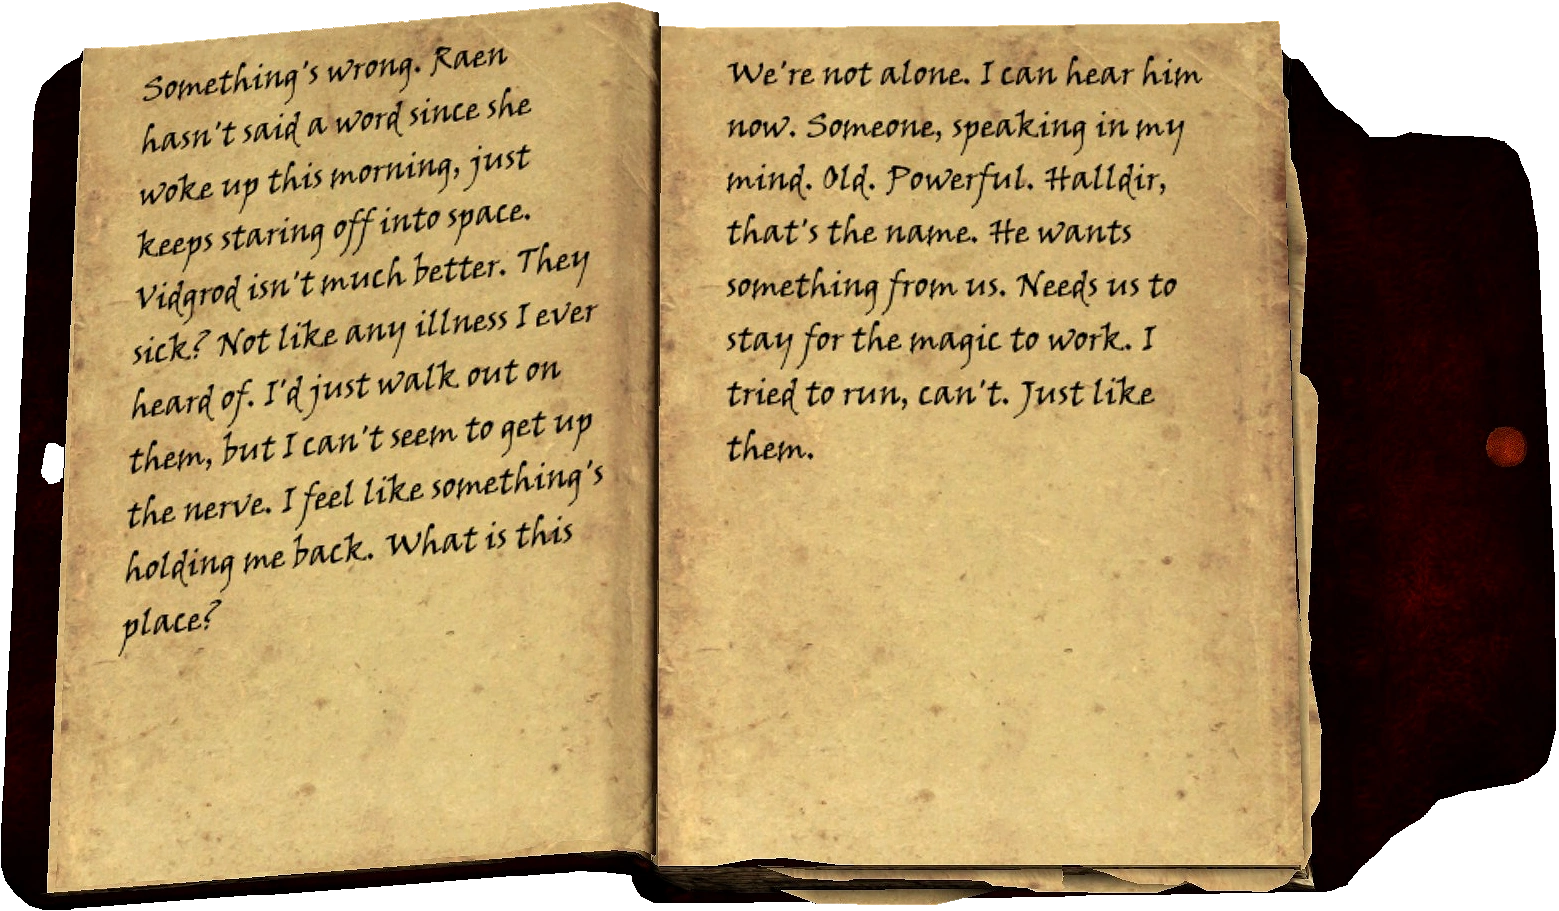 Something's wrong. Raen
hasn't said a word since she
woke up this morning, just
keeps staring off into space.
Vidgrod isn't much better. They
sick? Not like any illness I ever
heard of. I'd just walk out on
them, but I can't seem to get up
the nerve. I feel like something's
holding me back. What is this
place?
We're not alone. I can hear him
now. Someone, speaking in my
mind. Old. Powerful. Halldir,
that's the name. He wants
something from us. Needs us to
stay for the magic to work. I
tried to run, can't. Just like
them.